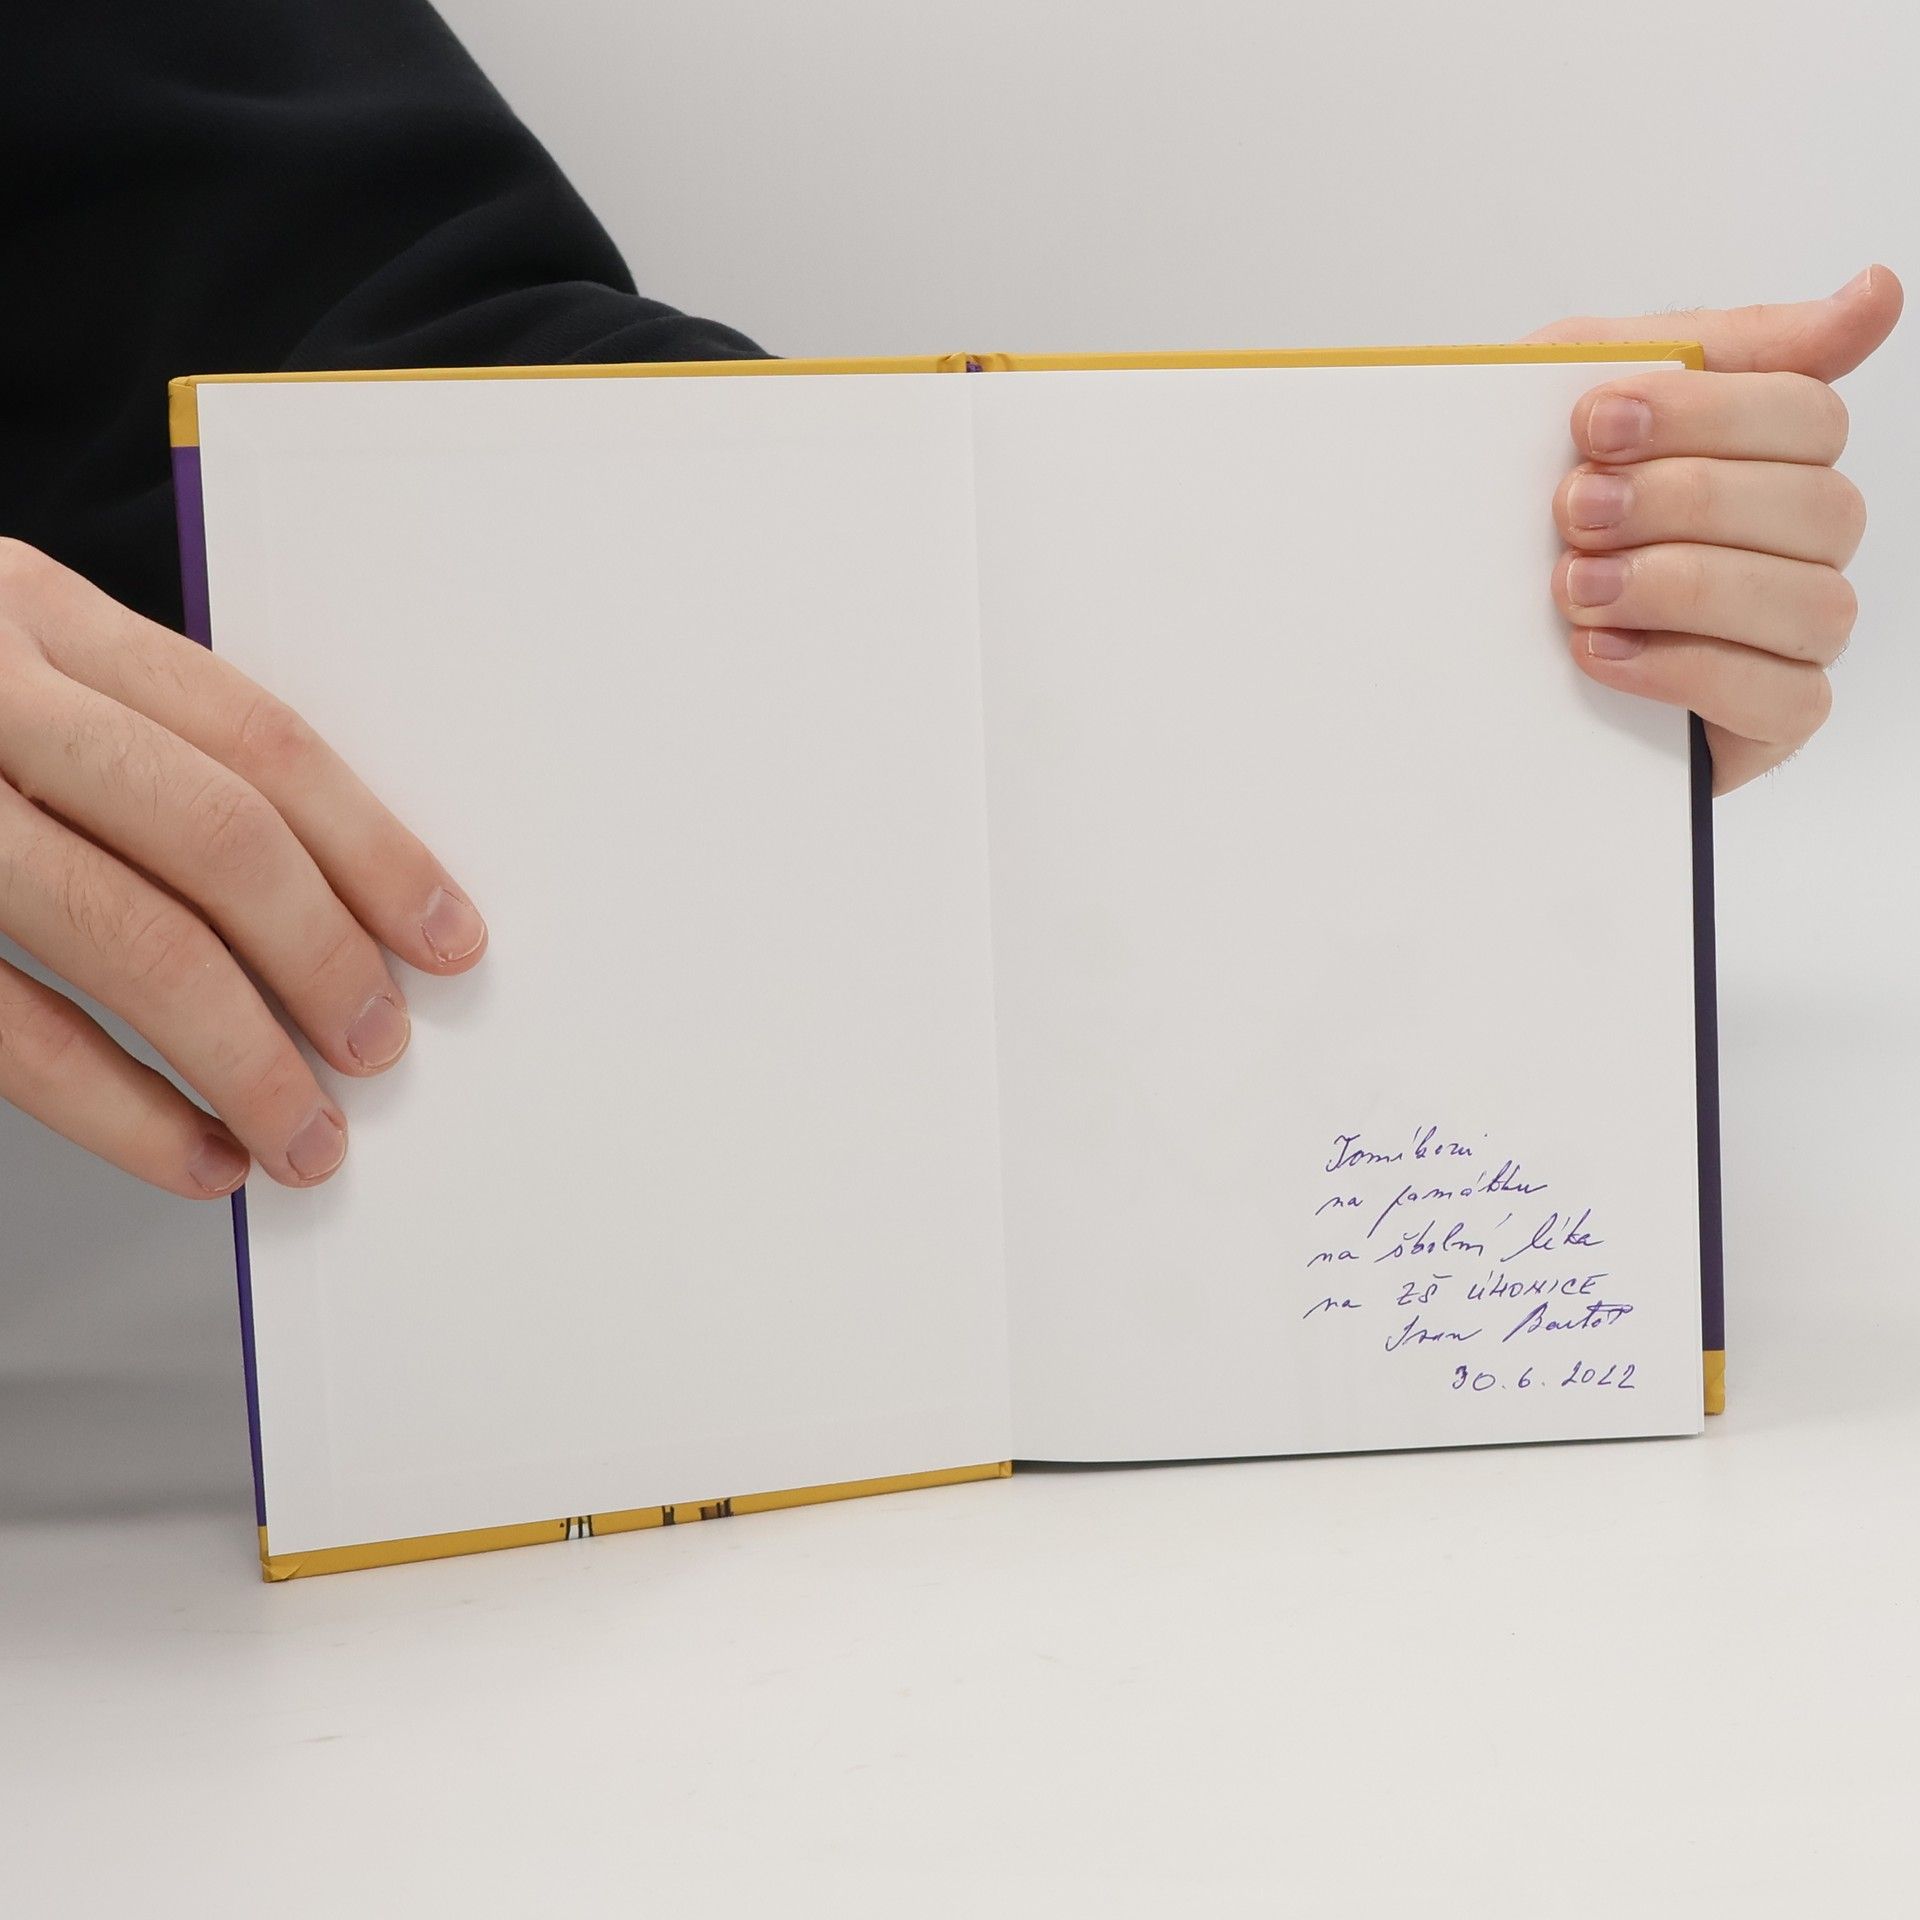 Tomíkovi
na památku
na školní léta
na ZŠ ÚHONICE
Ivan Bartoš
30.6.2022